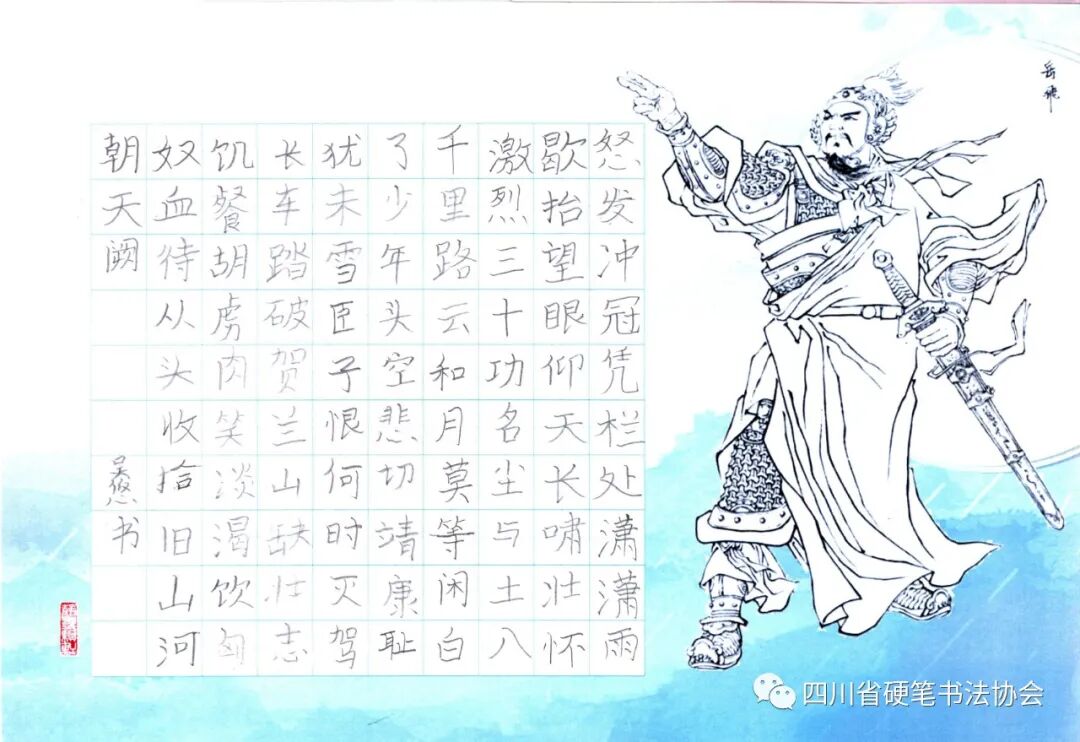 岳飛
怒发冲冠凭栏处潇潇雨
歇抬望眼仰天长啸壮怀
激烈三十功名尘与土八
千里路云和月莫等闲白
了少年头空悲切靖康耻
犹未雪臣子恨何时灭驾
长车踏破贺兰山缺壮志
饥餐胡虏肉笑淡渴饮匈
奴血待从头收拾旧山河
朝天阙
书
四川省硬笔书法协会